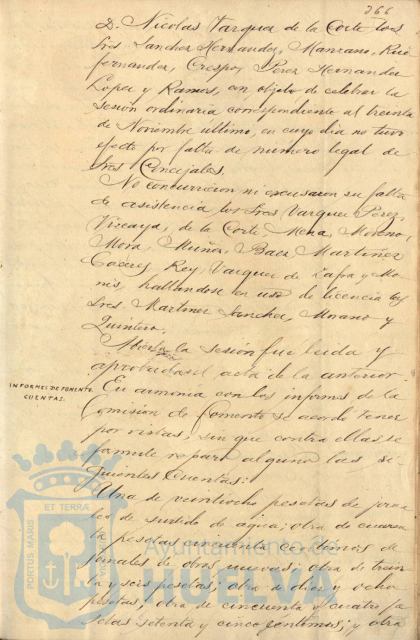 366
D. Nicolas Vazquez de la Corte los
Sres. Sanchez Hernandez, Manzano, Ruiz
Fernandez, Crespo, Perez Hernandez
Lopez y Ramos, con objeto de celebrar la
sesión ordinaria correspondiente al treinta
de Noviembre ultimo, en cuyo dia no tuvo
efecto por falta de numero legal de
Sres Concejales.
No concurrieron ni escusaron su falta
de asistencia los Sres Vazquez Perez,
Vizcaya, de la Corte Mena, Moreno,
Mora, Muñoz, Baez, Martinez
Caceres, Rey, Vazquez de Zafra y Mo-
nis, hallandose en uso de licencia los
Sres. Martinez Sanchez, Morano y
Quintero.
Abierta la sesión fue leida y
aprobada el acta de la anterior.
INFORMES DE FOMENTO.
CUENTAS.
En armonia con los informes de la
Comision de Fomento se acordó tener
por vistas, sin que contra ellas se
formule reparo alguno las si-
guientes cuentas:
Una de veintiocho pesetas de jorna-
les de surtido de agua; otra de cuaren-
ta pesetas cincuenta centimos de
jornales de obras nuevas; otra de trein-
ta y seis pesetas; otra de diez y ocho
pesetas; otra de cincuenta y cuatro pe-
setas setenta y cinco centimos; y otra
PORTUS MARIS ET TERRAE
Ayuntamiento de
HUELVA